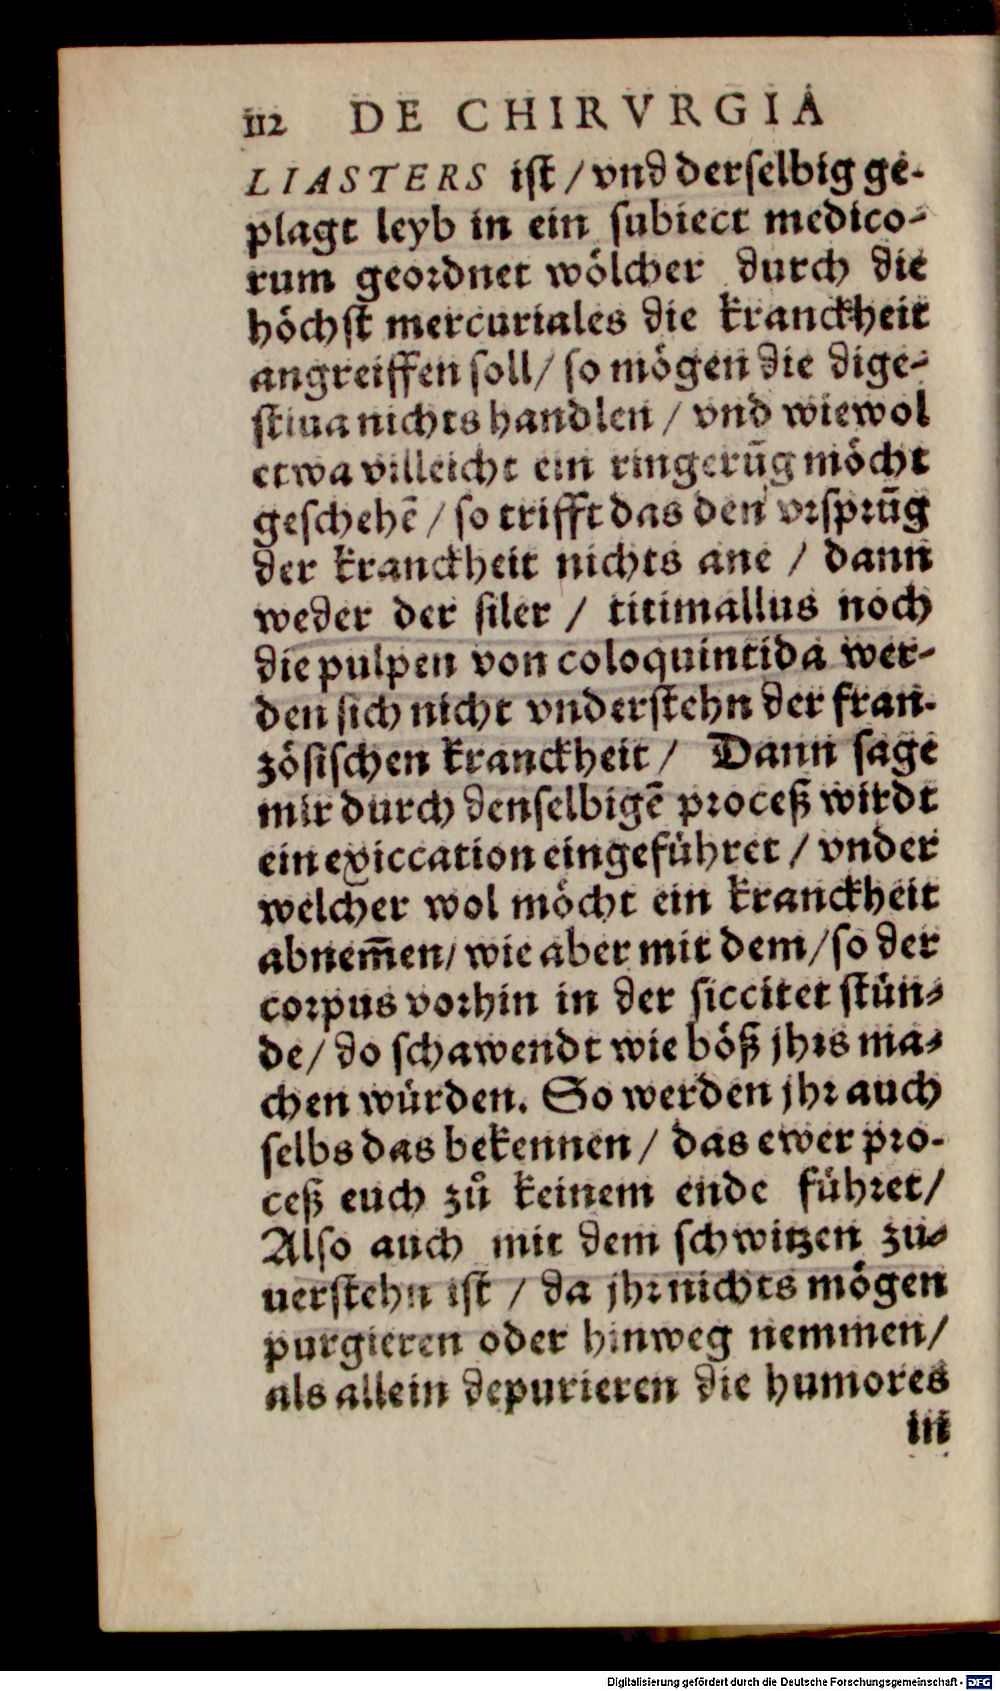 112 DE CHIRVRGIA
LIASTERS iſt / vnd derſelbig ge-
plagt leyb in ein ſubiect medico-
rum geordnet wölcher durch die
höchſt mercuriales die kranckheit
angreiffen ſoll / ſo mögen die dige-
ſtiua nichts handlen / vnd wiewol
etwa villeicht ein ringerūg möcht
geſchehē / ſo trifft das den vrſprūg
der kranckheit nichts ane / dann
weder der ſiler / titimallus noch
die pulpen von coloquintida wer-
den ſich nicht vnderſtehn der fran-
zöſiſchen kranckheit / Dann ſage
mir durch denſelbigē proceß wirdt
ein exiccation eingeführet / vnder
welcher wol möcht ein kranckheit
abnem̄en / wie aber mit dem / ſo der
corpus vorhin in der ſiccitet ſtün-
de / do ſchawendt wie böß jhrs ma-
chen würden. So werden jhr auch
ſelbs das bekennen / das ewer pro-
ceß euch zů keinem ende führet /
Alſo auch mit dem ſchwitzen zu-
uerſtehn iſt / da jhr nichts mögen
purgieren oder hinweg nemmen /
als allein depurieren die humores
in
Digitalisierung gefördert durch die Deutsche Forschungsgemeinschaft - DFG